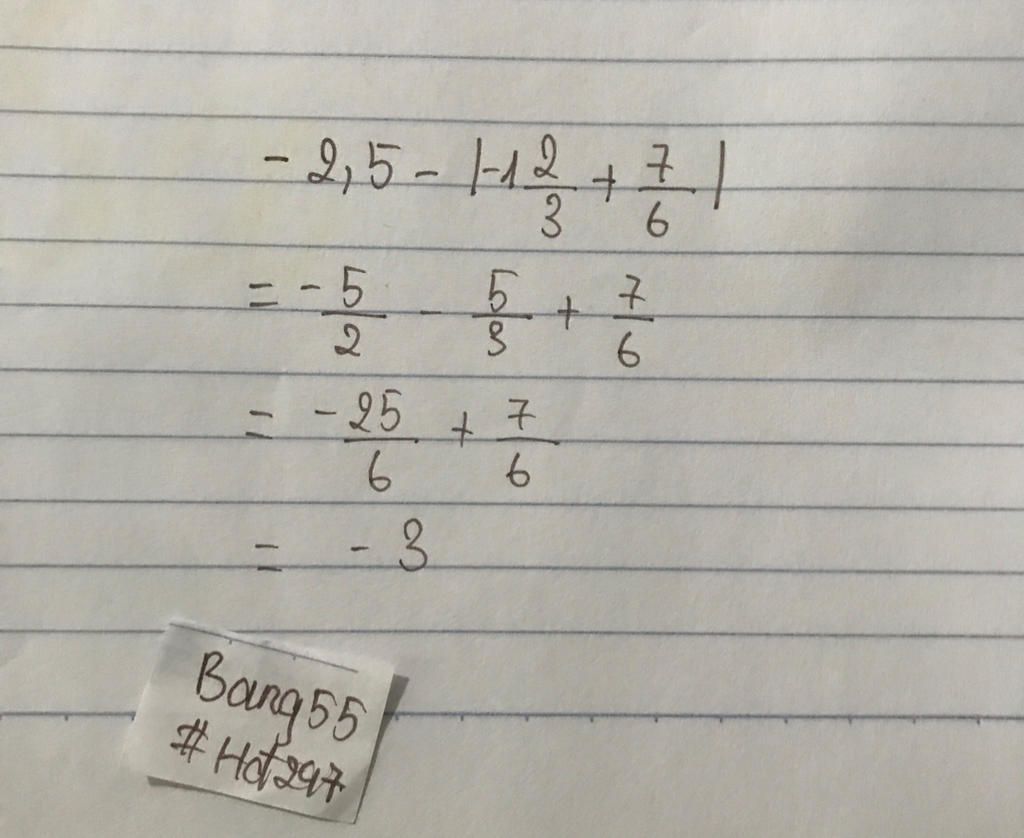 - 2,5 - |-1 2/3 + 7/6|
= -5/2 - 5/3 + 7/6
= -25/6 + 7/6
= - 3
Bang55
#Hot297